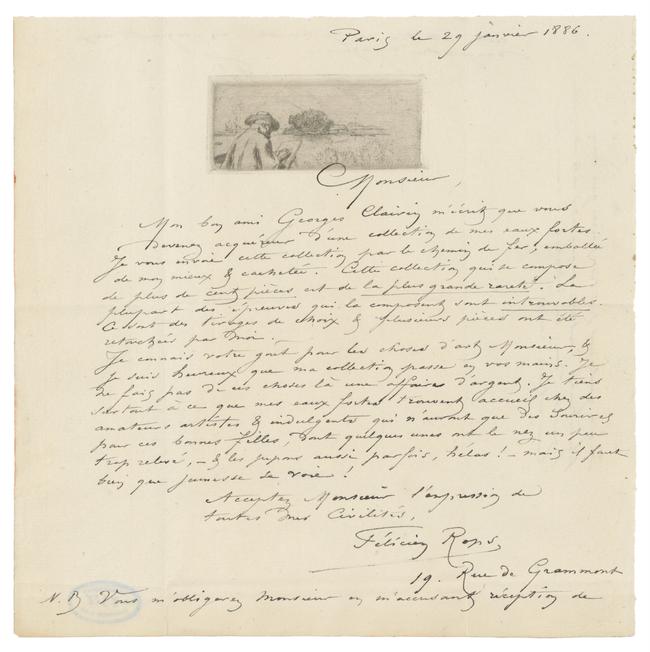 Paris le 29 janvier 1886.
Monsieur,
Mon bon ami Georges Clairin m'écrit que vous
devenez acquéreur d'une collection de mes eaux fortes.
Je vous envoie cette collection par le chemin de fer, emballée
de mon mieux & cachetée. Cette collection qui se compose
de plus de cent pièces est de la plus grande rareté. La
plupart des épreuves qui la composent sont introuvables.
Ce sont des tirages de choix & plusieurs pièces ont été
retouchées par moi.
Je connais votre goût pour les choses d'art Monsieur, &
je suis heureux que ma collection passe en vos mains. Je
ne fais pas de ces choses là une affaire d'argent. Je tiens
surtout à ce que mes eaux fortes trouvent accueil chez des
amateurs artistes & indulgents qui n'auront que des sourires
pour ces bonnes filles, dont quelques unes ont le nez un peu
trop relevé, - & les jupons aussi parfois, hélas! - mais il faut
bien que jeunesse se voie!
Acceptez Monsieur l'expression de
toutes mes civilités,
Félicien Rops
19. Rue de Grammont
N. B. Vous m'obligerez Monsieur en m'accusant réception de